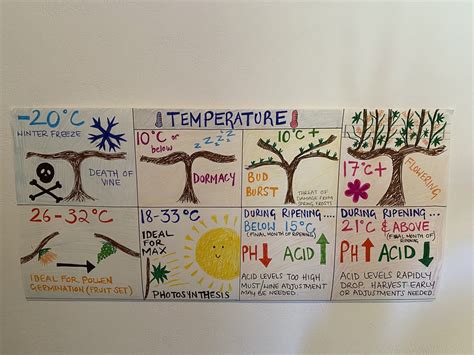 TEMPERATURE
-20°C
WINTER FREEZE
DEATH OF
VINE
10°C or
below
zzzzz
DORMACY
10°C+
BUD
BURST
THREAT OF
DAMAGE FROM
SPRING FROSTS
17°C+
FLOWERING
26-32°C
IDEAL FOR POLLEN
GERMINATION (FRUIT SET)
18-33°C
IDEAL
FOR
MAX
PHOTOSYNTHESIS
DURING RIPENING....
BELOW 15°C
(FINAL MONTH OF RIPENING)
PH ACID
ACID LEVELS TOO HIGH
MUST/WINE ADJUSTMENT
MAY BE NEEDED.
DURING RIPENING...
21°C & ABOVE
(FINAL MONTH OF
RIPENING)
PH ACID
ACID LEVELS RAPIDLY
DROP. HARVEST EARLY
OR ADJUSTMENTS NEEDED.